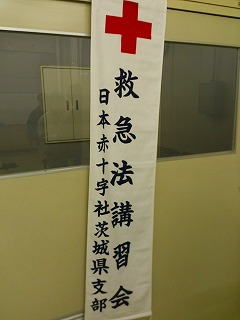 救急法講習会
日本赤十字社茨城県支部